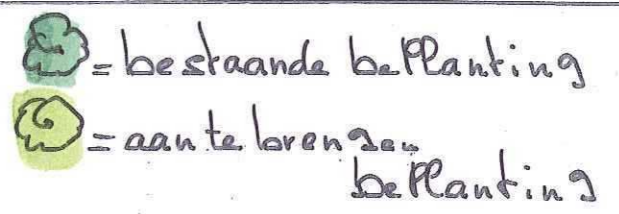 = bestaande beplanting
= aan te brengen
beplanting